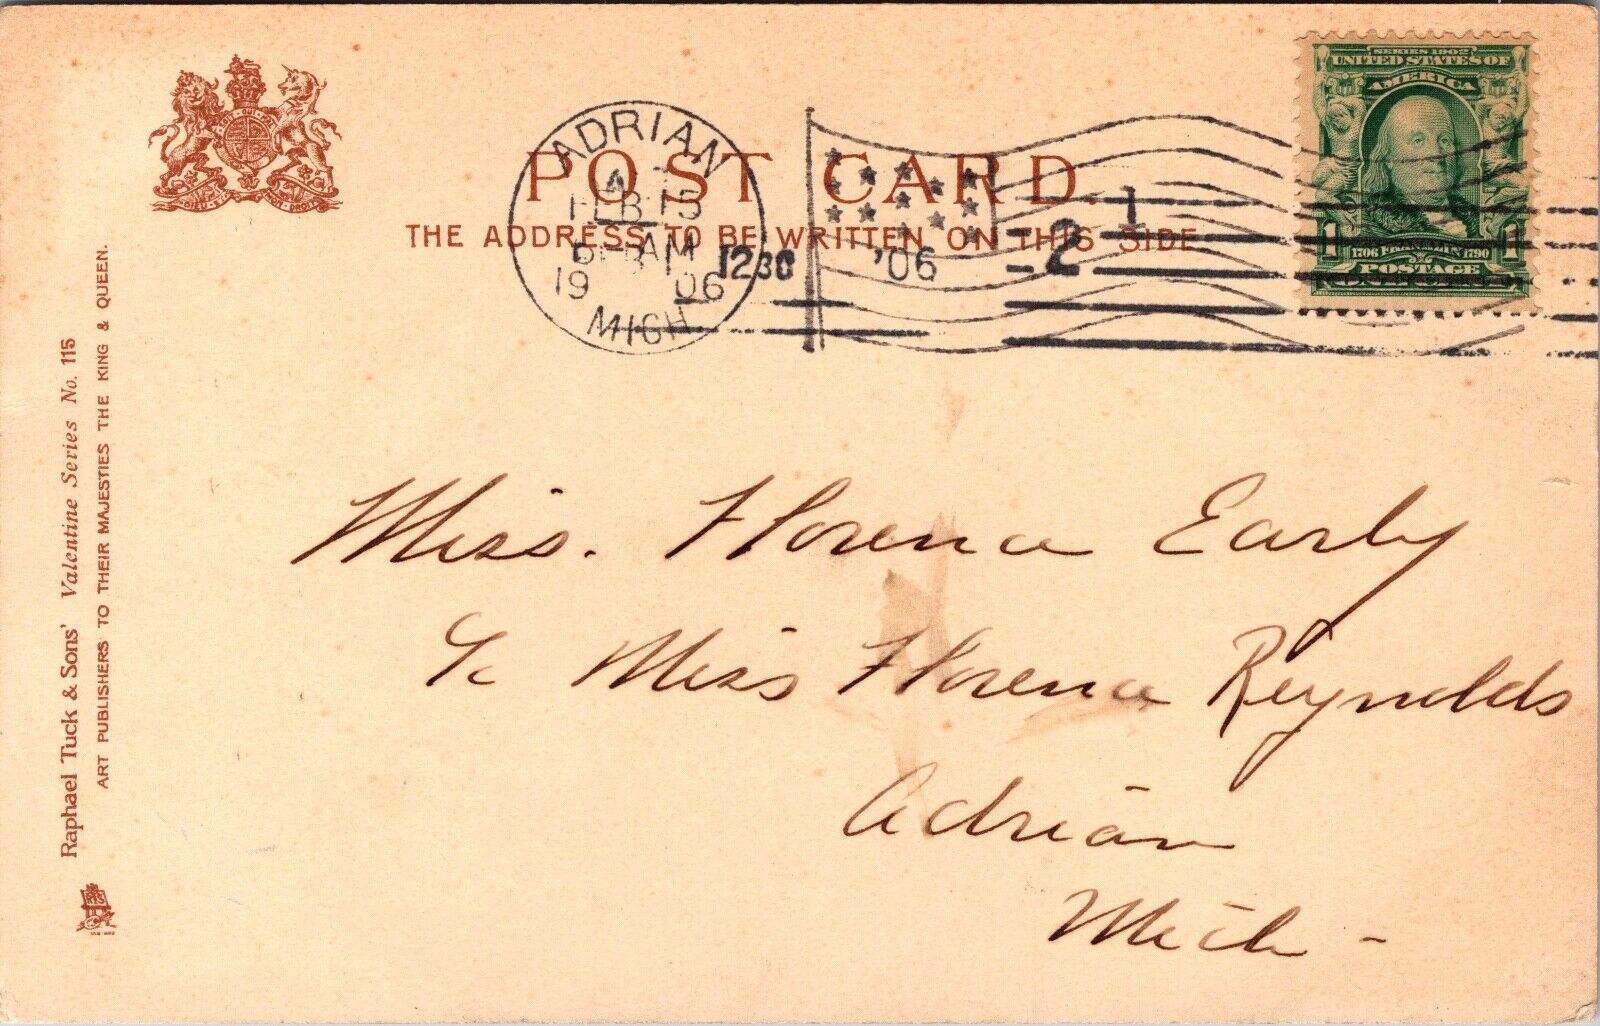 SERIES 1902
UNITED STATES OF
AMERICA
1 1706 FRANKLIN 1790 1
POSTAGE
ADRIAN
FEB 15
AM 1230
1906
MICH.
'06
1
2
POST CARD.
THE ADDRESS TO BE WRITTEN ON THIS SIDE
Raphael Tuck & Sons' Valentine Series No. 115
ART PUBLISHERS TO THEIR MAJESTIES THE KING & QUEEN.
Miss. Florence Early
℅ Miss Florence Reynolds
Adrian
Mich -